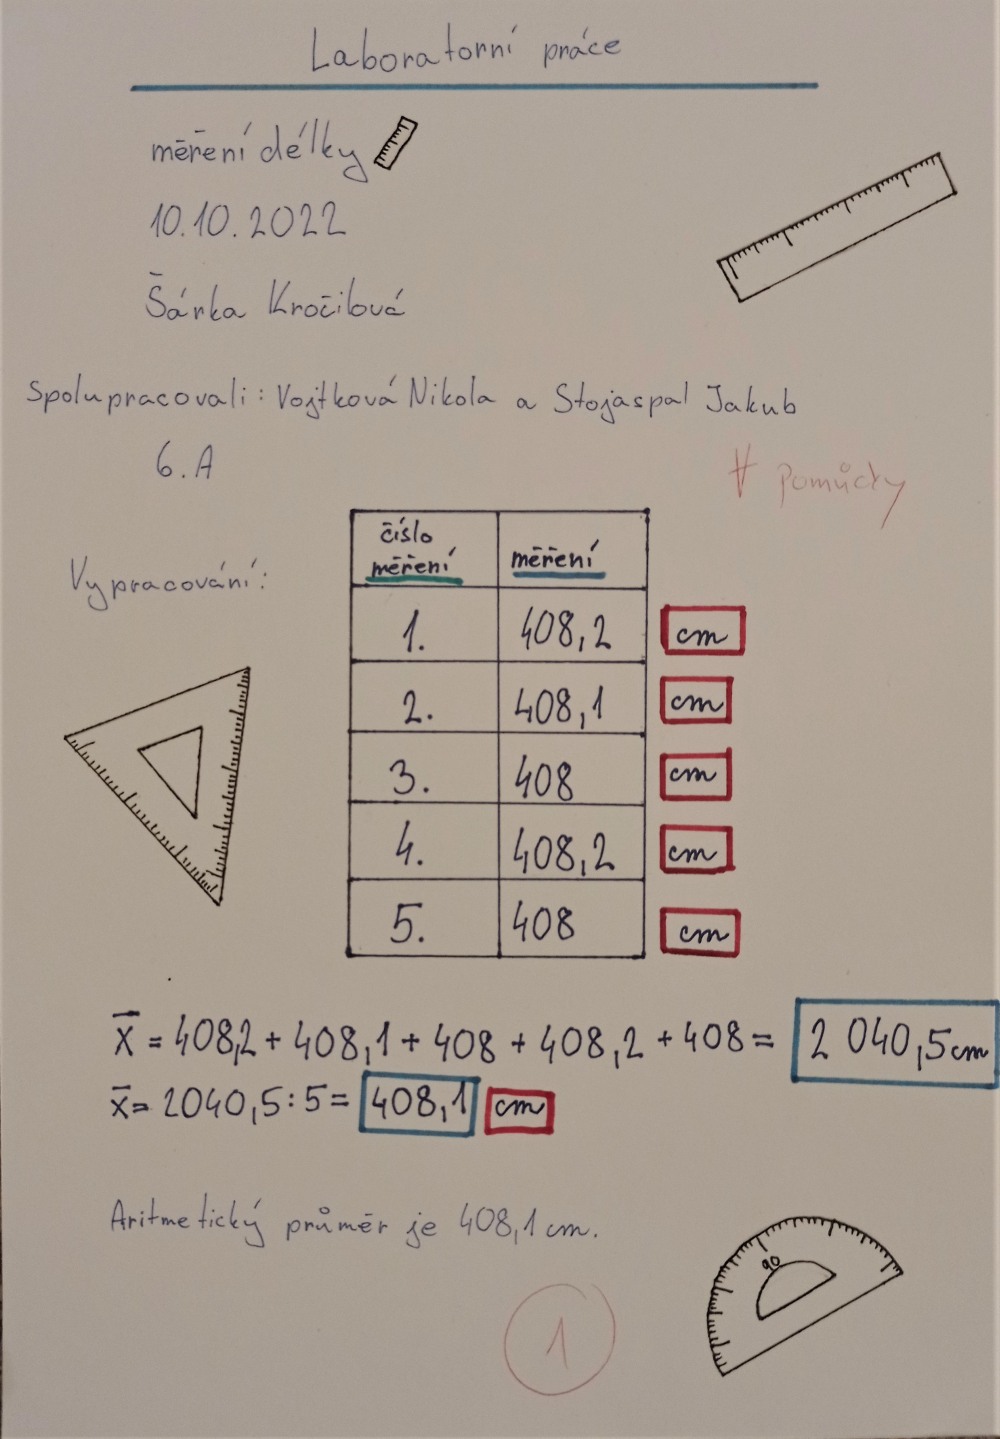 Laboratorní práce
měření délky
10.10.2022
Šárka Kročilová
Spolupracovali: Vojtková Nikola a Stojaspal Jakub
6.A
pomůcky
Vypracování:
číslo měření měření
1. 408,2 cm
2. 408,1 cm
3. 408 cm
4. 408,2 cm
5. 408 cm
x̄ = 408,2 + 408,1 + 408 + 408,2 + 408 = 2 040,5 cm
x̄ = 2040,5 : 5 = 408,1 cm
Aritmetický průměr je 408,1 cm.
90
1